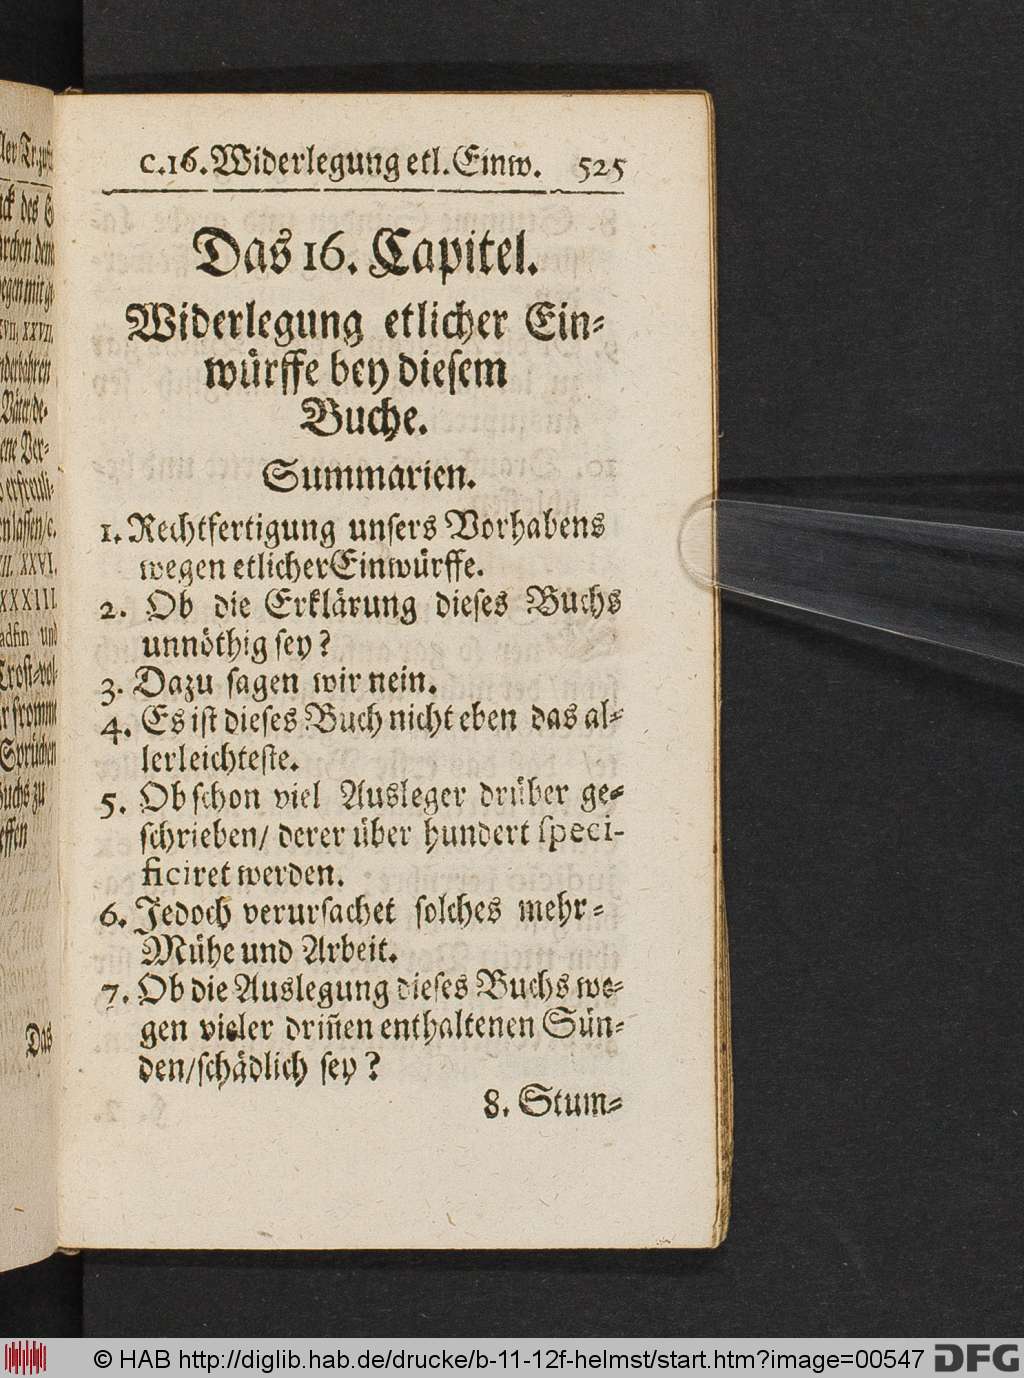 c.16. Widerlegung etl. Einw. 525
Das 16. Capitel.
Widerlegung etlicher Ein-
würffe bey diesem
Buche.
Summarien.
1. Rechtfertigung unsers Vorhabens
wegen etlicher Einwürffe.
2. Ob die Erklärung dieses Buchs
unnöthig sey?
3. Dazu sagen wir nein.
4. Es ist dieses Buch nicht eben das al-
lerleichteste.
5. Ob schon viel Ausleger drüber ge-
schrieben/ derer über hundert speci-
ficiret werden.
6. Jedoch verursachet solches mehr-
Mühe und Arbeit.
7. Ob die Auslegung dieses Buchs we-
gen vieler driñen enthaltenen Sün-
den/schädlich sey?
8. Stum-
des
XXVI.
XXXIII.
und
Sprüchen
zu
Das
© HAB http://diglib.hab.de/drucke/b-11-12f-helmst/start.htm?image=00547
DFG